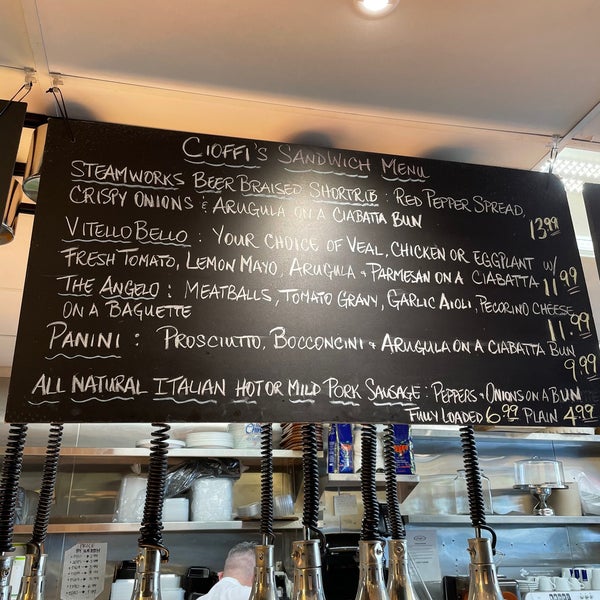 CIOFFI'S SANDWICH MENU
STEAMWORKS BEER BRAISED SHORTRIB : RED PEPPER SPREAD,
CRISPY ONIONS & ARUGULA ON A CIABATTA BUN 13.99
VITELLO BELLO : YOUR CHOICE OF VEAL, CHICKEN OR EGGPLANT W/
FRESH TOMATO, LEMON MAYO, ARUGULA & PARMESAN ON A CIABATTA 11.99
THE ANGELO : MEATBALLS, TOMATO GRAVY, GARLIC AIOLI, PECORINO CHEESE
ON A BAGUETTE 11.99
PANINI : PROSCIUTTO, BOCCONCINI & ARUGULA ON A CIABATTA BUN
9.99
ALL NATURAL ITALIAN HOT OR MILD PORK SAUSAGE : PEPPERS & ONIONS ON A BUN
FULLY LOADED 6.99 PLAIN 4.99